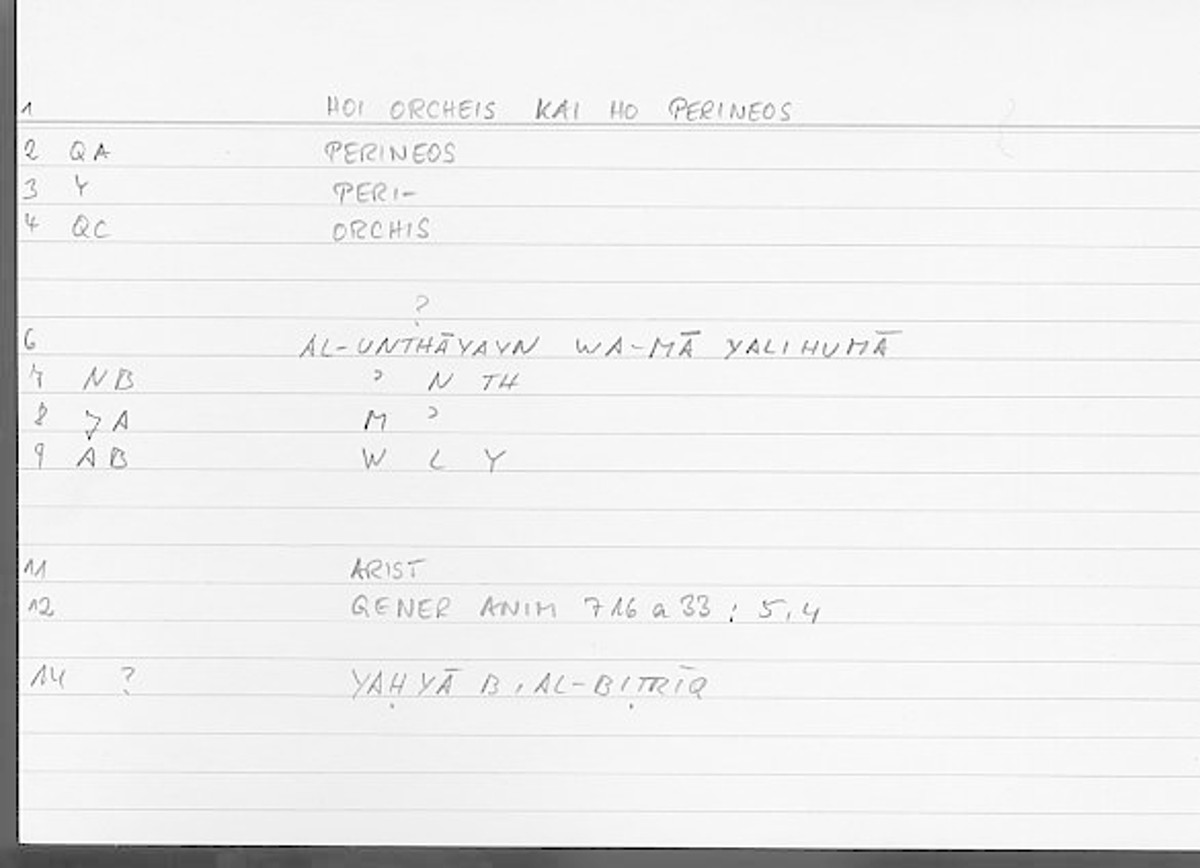 1 HOI ORCHEIS KAI HO PERINEOS
2 QA PERINEOS
3 Y PERI-
4 QC ORCHIS
?
6 AL-UNTHĀYAYN WA-MĀ YALIHUMĀ
7 NB ʾ N TH
8 JA M ʾ
9 AB W L Y
11 ARIST
12 GENER ANIM 716 a 33 ; 5,4
14 ? YAḤYĀ B. AL-BIṬRĪQ